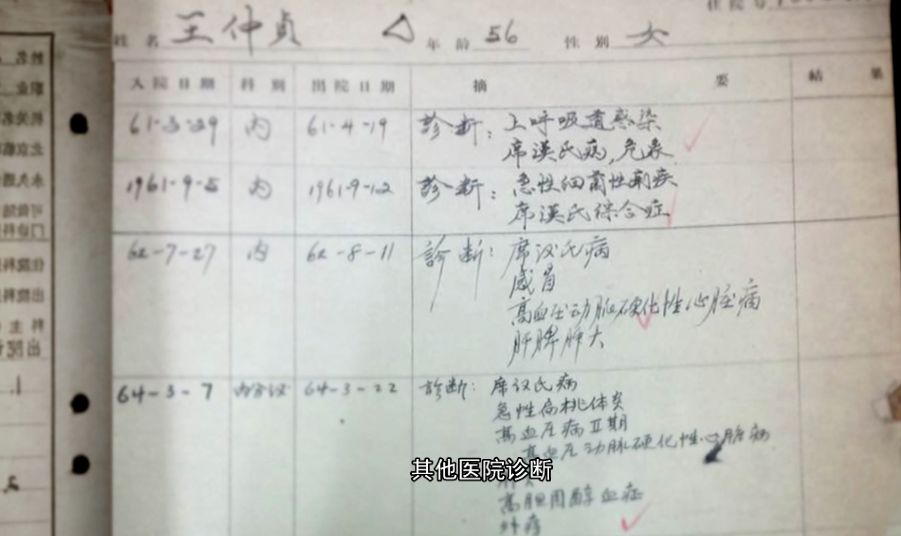 住院号
姓名 王仲贞 △ 年龄 56 性别 女
入院日期 科别 出院日期 摘要 结果
61-3-29 内 61-4-19 診断: 上呼吸道感染
席漢氏病,危象
1961-9-5 内 1961-9-12 診断: 急性细菌性痢疾
席漢氏综合症
62-7-27 内 62-8-11 診断: 席汉氏病
感冒
高血压动脉硬化性心脏病
肝脾肿大
64-3-7 内分泌 64-3-22 診断: 席汉氏病
急性扁桃体炎
高血压病Ⅱ期
高血压动脉硬化性心脏病
其他医院诊断
高胆固醇血症
外痔